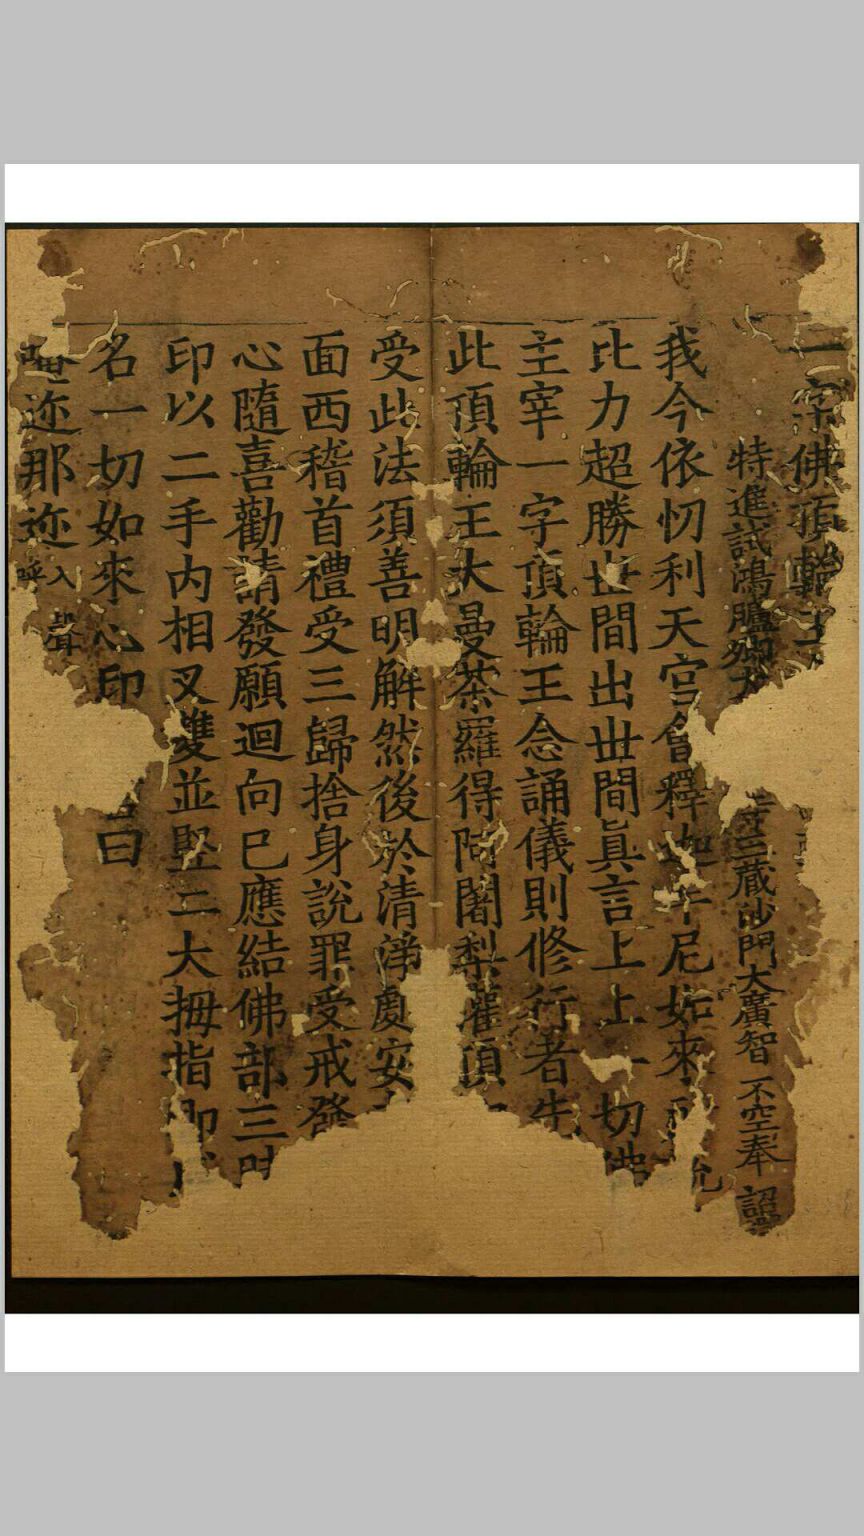 一字佛頂輪王
特進試鴻臚卿大 寺三藏沙門大廣智不空奉 詔
我今依忉利天宮會釋迦牟尼如來 說
比力超勝丗間出丗間眞言上上一切佛
主宰一字頂輪王念誦儀則修行者先
此頂輪王大曼荼羅得阿闍梨灌頂
受此法須善明解然後於清淨處安
面西稽首禮受三歸捨身說罪受戒發
心隨喜勸請發願迴向巳應結佛部三
印以二手内相叉雙並竪二大拇指即
名一切如來心印 曰
唵迩那迩呼入聲